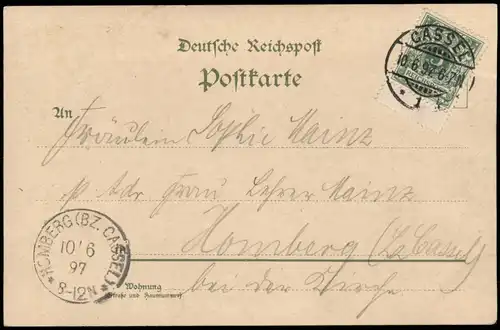 Deutsche Reichspost
Postkarte
CASSEL
10 6 97 6-7N
* 1
An
Fräulein Sophie Mainz
p Adr Frau Lehrer Mainz
Homberg (Bz Cassel)
bei der Kirche
HOMBERG (BZ. CASSEL)
10/6
97
8-12N
Wohnung
(Straße und Hausnummer)